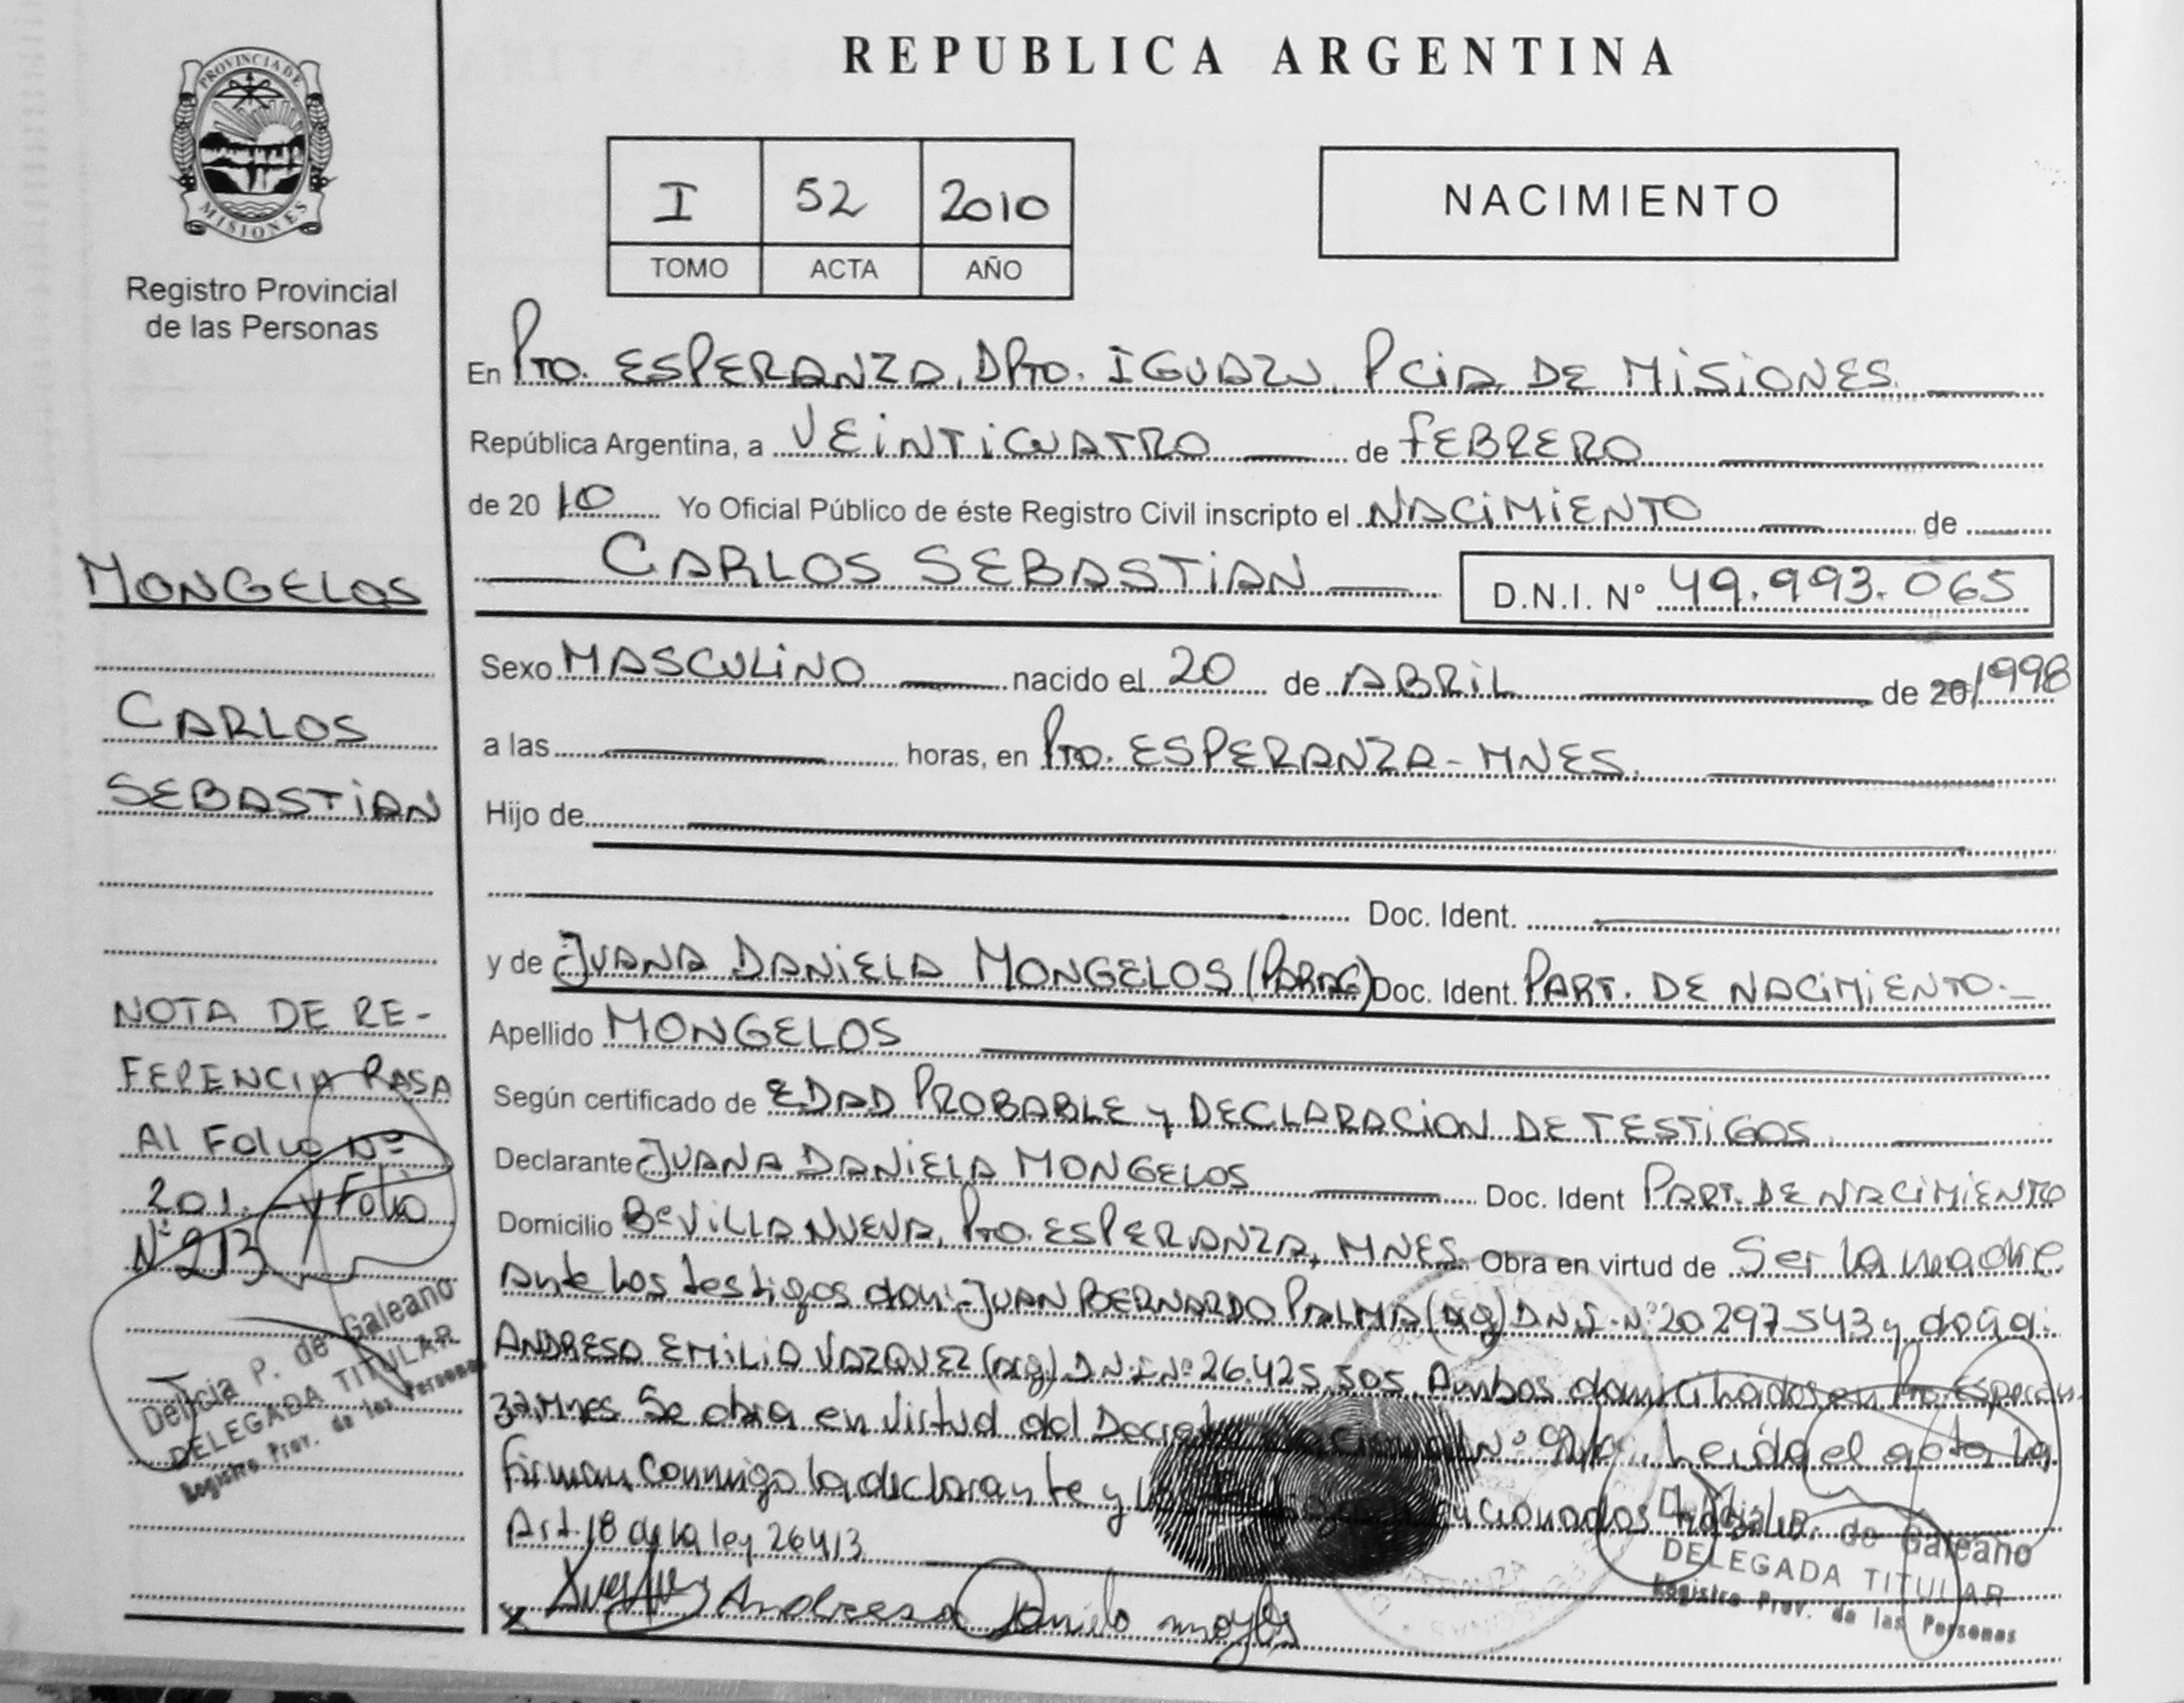 PROVINCIA DE
MISIONES
Registro Provincial
de las Personas
MONGELOS
CARLOS
SEBASTIAN
NOTA DE RE-
FERENCIA PASA
Al Folio Nº
201. - y Folio
Nº 213
Delicia P. de Galeano
DELEGADA TITULAR
Registro Prov. de las Personas
REPUBLICA ARGENTINA
I 52 2010
TOMO ACTA AÑO
NACIMIENTO
En Pto. ESPERANZA, DPto. IGUAZU, PCiA DE MISIONES
República Argentina, a VEINTICUATRO de FEBRERO
de 2010 Yo Oficial Público de éste Registro Civil inscripto el NACIMIENTO de
CARLOS SEBASTIAN D.N.I. Nº 49.993.065
Sexo MASCULINO nacido el 20 de ABRIL de 20/1998
a las horas, en Pto. ESPERANZA - MNES.
Hijo de
Doc. Ident.
y de JUANA DANIELA MONGELOS (PARAG) Doc. Ident. PART. DE NACIMIENTO.-
Apellido MONGELOS
Según certificado de EDAD PROBABLE y DECLARACION DE TESTIGOS
Declarante JUANA DANIELA MONGELOS Doc. Ident PART. DE NACIMIENTO
Domicilio Bº VILLA NUEVA, Pto. ESPERANZA, MNES. Obra en virtud de Ser la madre
Ante los testigos don: JUAN BERNARDO PALMA (arg) D.N.I. Nº 20.297.543 y doña:
ANDRESA EMILIA VAZQUEZ (arg) D.N.I. Nº 26.425.505. Ambos domiciliados en Pto. Esperan-
za, Mnes Se obra en virtud del Decreto Nacional Nº Leída el acta la
firman conmigo la declarante y los testigos mencionados
Art. 18 de la ley 26413
x Andresa
Delicia P. de Galeano
DELEGADA TITULAR
Registro Prov. de las Personas